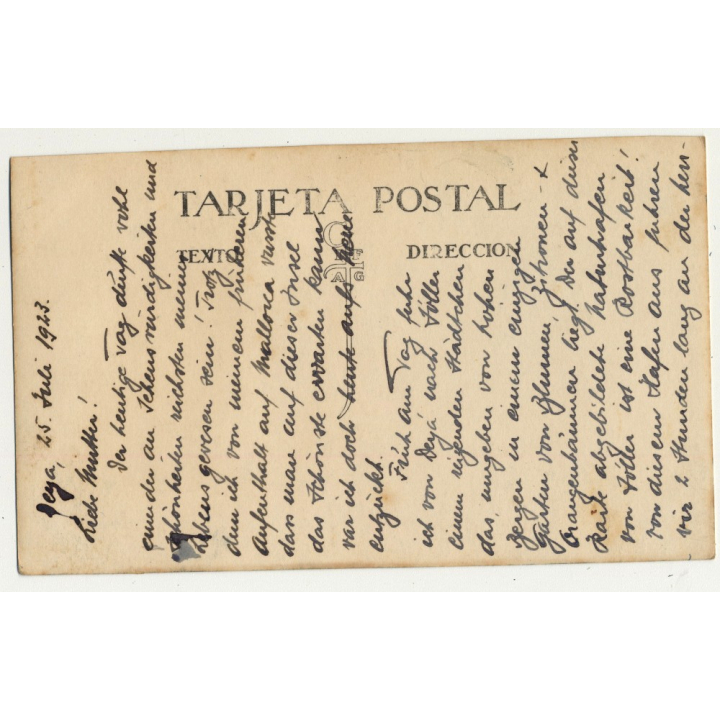 TARJETA POSTAL
TEXTO
DIRECCION
Deyá, 25. Juli 1923.
Liebe Mutter!
Der heutige Tag dürfte wohl
einer der an Sehenswürdigkeiten und
Schönheiten reichsten meines
Lebens gewesen sein! Trotz
dem ich von meinem früheren
Aufenthalt auf Mallorca wusste
dass man auf dieser Insel
das Schönste erwarten kann
war ich doch heute aufs neue
entzückt.
Früh am Tag fuhr
ich von Deyá nach Sóller
einem reizenden Städtchen
das, umgeben von hohen
Bergen in einem einzigen
Garten von Blumen, Zitronen- &
Orangenbäumen liegt. Der auf dieser
Karte abgebildete Naturhafen
von Sóller ist eine Kostbarkeit!
Von diesem Hafen aus fuhren
wir 2 Stunden lang an der herr-